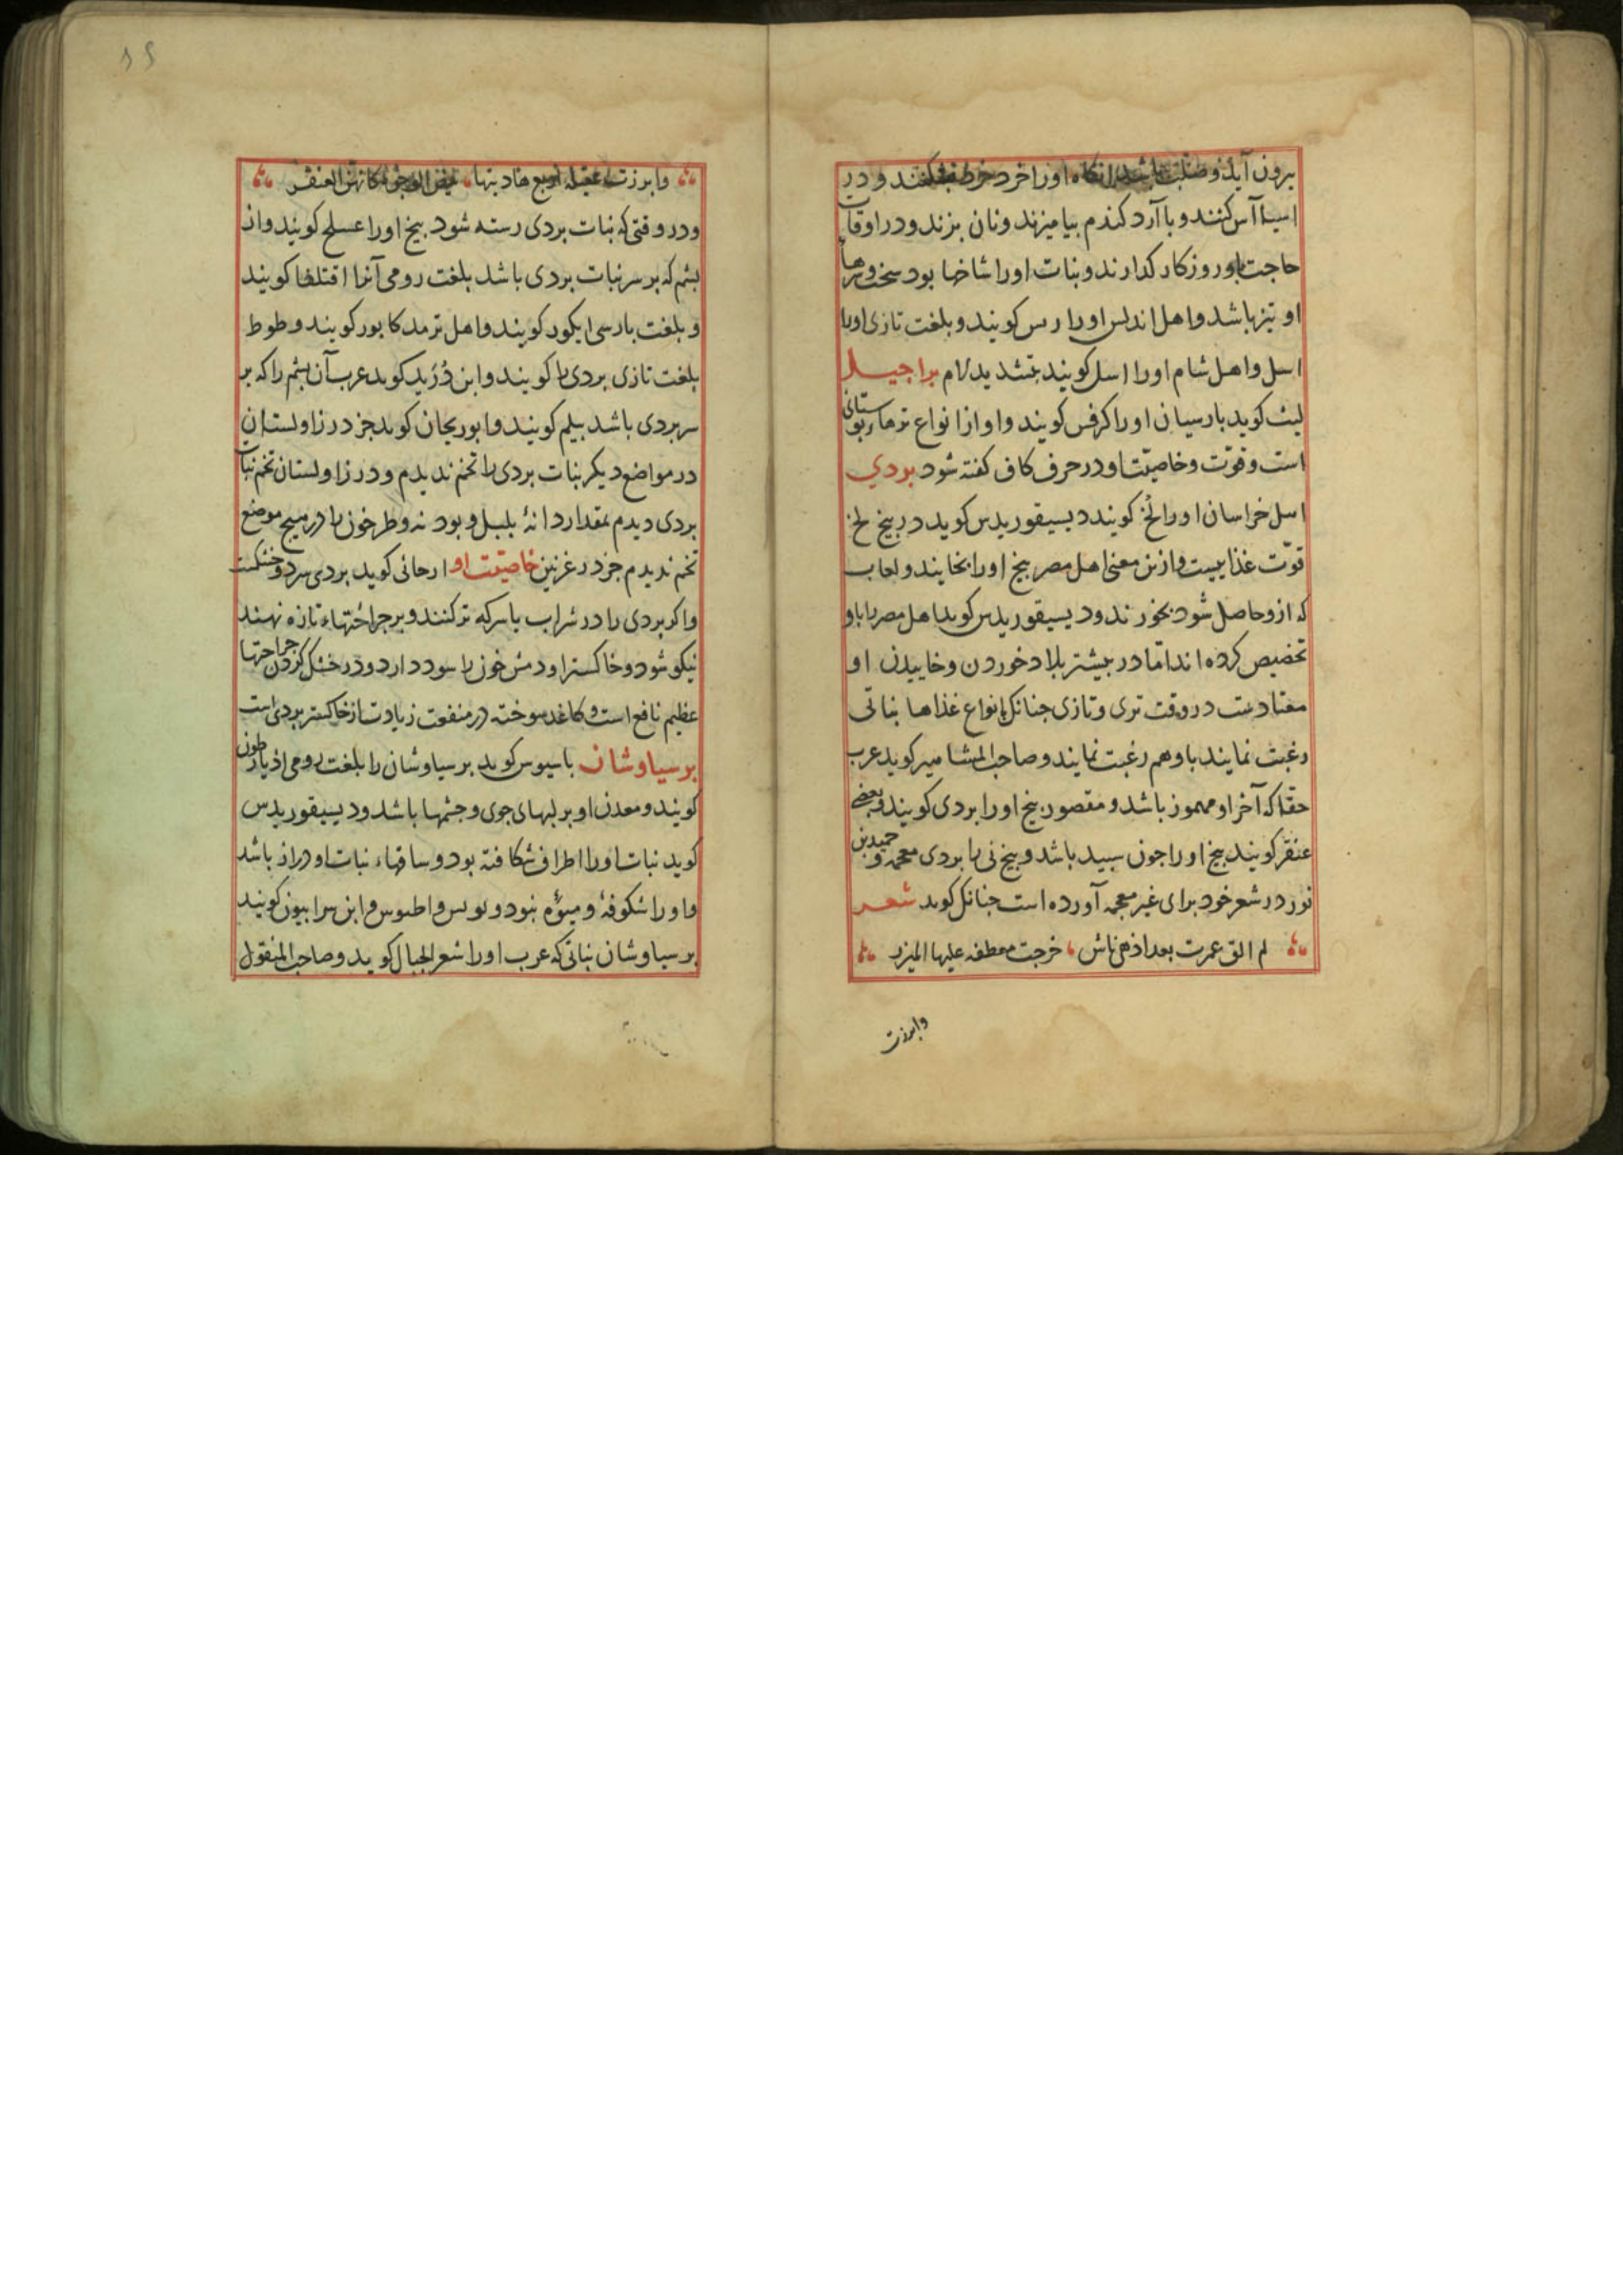 برون آید و صلب باشد انکاه اورا خرد خرد بشکنند و در
اسیا آس کنند و با آرد کندم بیامیزند و نان بزند و در اوقات
حاجت باو روزکار کدارند و نبات اورا شاخها بود سخت و سرها
او تیز باشد و اهل اندلس اورا ارس کویند و بلغت تازی اورا
اسل و اهل شام اورا اسل کویند بتشدید لام براجیل
لیث کوید بارسیان اورا کرفس کویند و او از انواع ترها بوستانی
است و قوّت و خاصیّت او در حرف کاف کفته شود بردي
اسل خراسان اورا لُخ کویند دیسیقوریدس کوید در بیخ لخ
قوّت غذاییست و ازین معنی اهل مصر بیخ اورا بخایند و لعاب
که ازو حاصل شود بخورند و دیسیقوریدس کوید اهل مصر را باو
تخصیص کرده اند امّا در بیشتر بلاد خوردن و خاییدن او
معتادست در وقت تری و تازی جنانک بانواع غذاها نباتی
رغبت نمایند باو هم رغبت نمایند و صاحب المشاهیر کوید عرب
حفا که آخر او مهموز باشد و مقصور بیخ اورا بردی کویند و بعضے
عنقر کویند بیخ اورا جون سبید باشد و بیخ نی را بردی معجمه و حمید بن
ثور در شعر خود برای غیر معجمه آورده است جنانک کوید شعر
لم الق عمرت بعد اذهی ناش خرجت معطفه علیها المیزر
وابرزت
وابرزت عقیله اربع هادیتها بیض الوجوه کانهن العنقر
و در وقتی که نبات بردی رسته شود بیخ اورا عسلج کویند و ان
بشم که بر سر نبات بردی باشد بلغت رومی آنرا اقتلفا کویند
و بلغت بارسی ایکور کویند و اهل ترمد کابور کویند و طوط
بلغت تازی بردی را کویند و ابن دُرَید کوید عرب آن بشم را که بر
سر بردی باشد بیلم کویند و ابوریحان کوید جز در زاولستان
در مواضع دیکر نبات بردی را تخم ندیدم و در زاولستان تخم نبات
بردی دیدم بمقدار دانهٔ بلبل و بودنه و طرخون را در هیج موضع
تخم ندیدم جز در غزنین خاصیّت او ارجانی کوید بردی سرد و خشکست
و اکر بردی را در شراب یا سرکه تر کنند و بر جراحتهاء تازه نهند
نیکو شود و خاکستر او دمش خون را سود دارد و در خشک کردن جراحتها
عظیم نافع است و کاغد سوخته در منفعت زیادت از خاکستر بردی است
برسیاوشان باسیوس کوید برسیاوشان را بلغت رومی اذیارطون
کویند و معدن او بر لبهای جوی و جشمها باشد و دیسیقوریدس
کوید نبات اورا اطراف شکافته بود و ساقهاء نبات او دراز باشد
و اورا شکوفهٔ و میوهٔ نبود و بولس و اطیوس و ابن سرابیون کویند
برسیاوشان نباتی که عرب اورا شعر الجبال کوید و صاحب المنقول